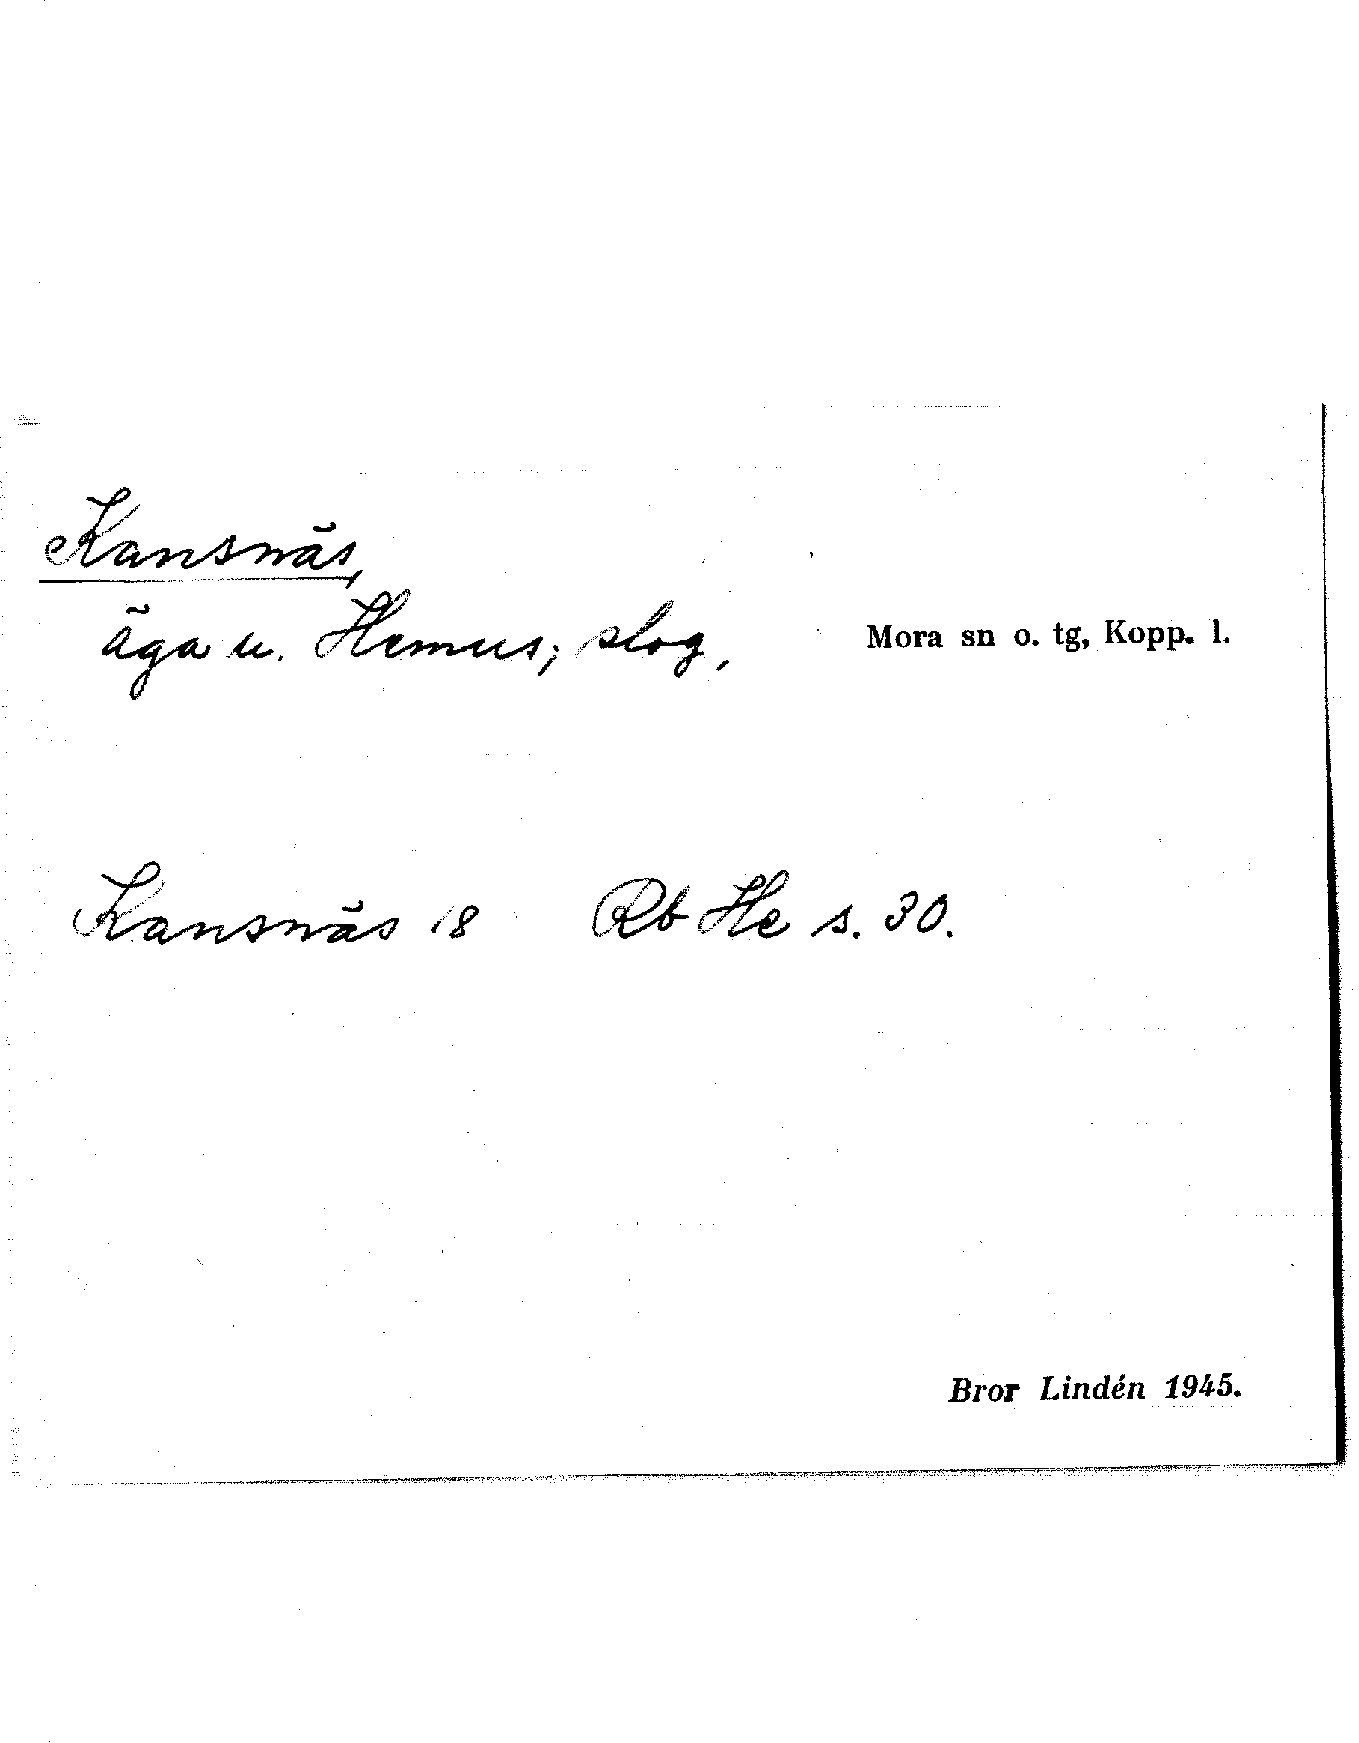 Kansnäs,
äga u. Hemus; slog, Mora sn o. tg, Kopp. l.
Kansnäs 18 Rb He s. 30.
Bror Lindén 1945.